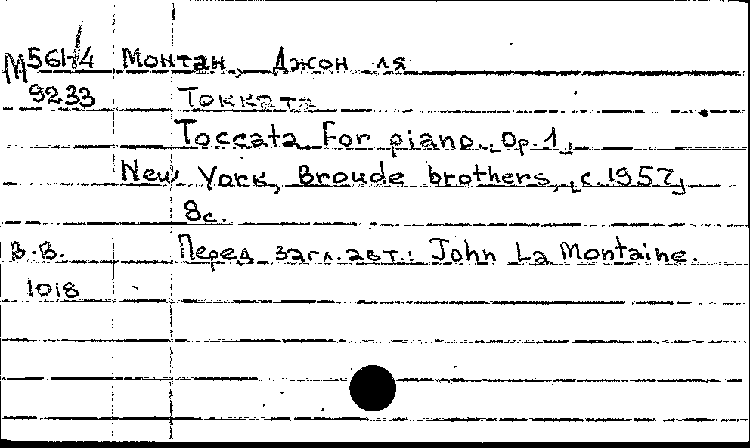 М56І-4 Монтан, Джон ля
9233 Токката
Toccata for piano. [Op.1]
New York, Broude brothers, [c.1957]
8с.
В.В. Перед загл. авт.: John La Montaine.
1018